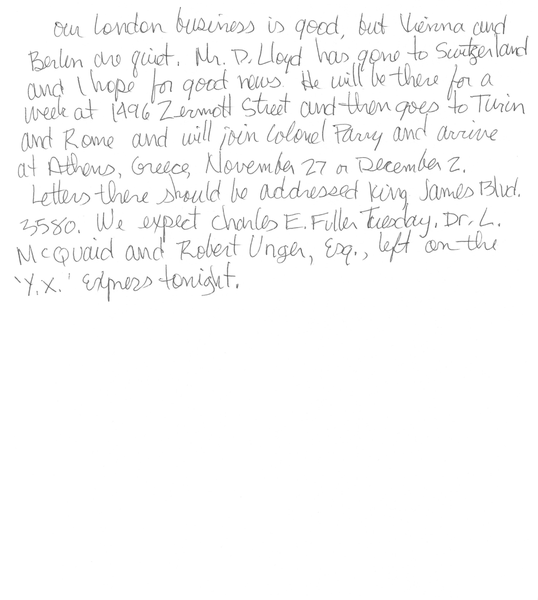 our London business is good, but Vienna and
Berlin are quiet. Mr. D. Lloyd has gone to Switzerland
and I hope for good news. He will be there for a
week at 1496 Zermott Street and then goes to Turin
and Rome and will join Colonel Parry and arrive
at Athens, Greece, November 27 or December 2.
Letters there should be addressed King James Blvd.
3580. We expect Charles E. Fuller Tuesday. Dr. L.
McQuaid and Robert Unger, Esq., left on the
'Y.X.' Express tonight.